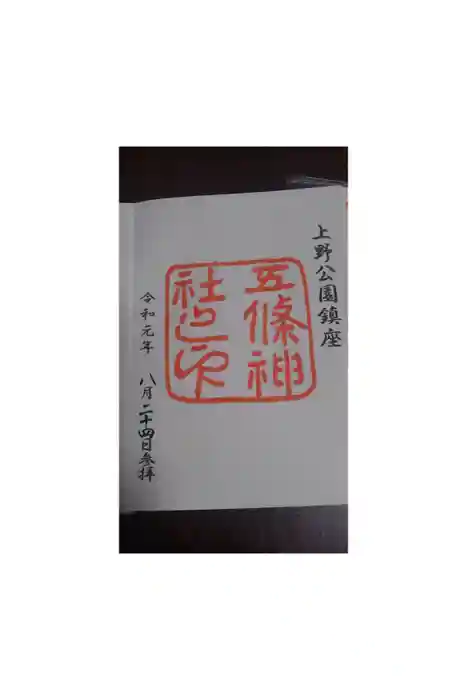 上野公園鎮座
五條神
社之印
令和元年 八月二十四日参拝